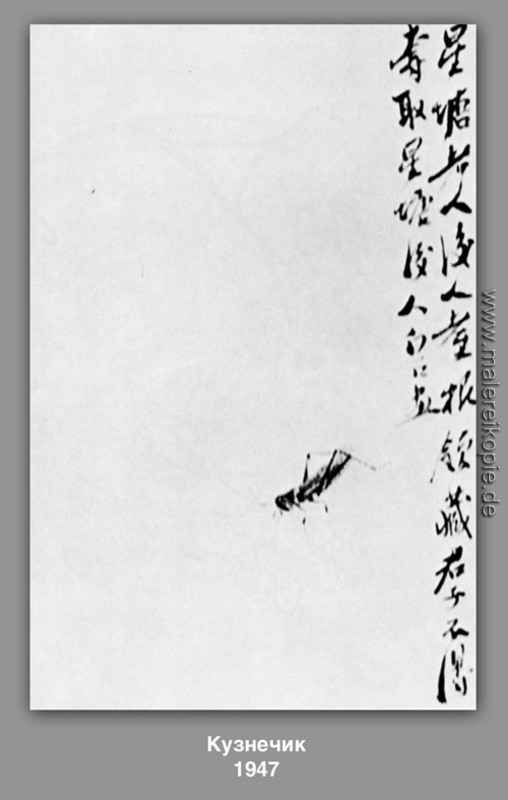 星塘老人後人根領藏君子不得
取星塘後人白石
www.malereikopie.de
Кузнечик
1947